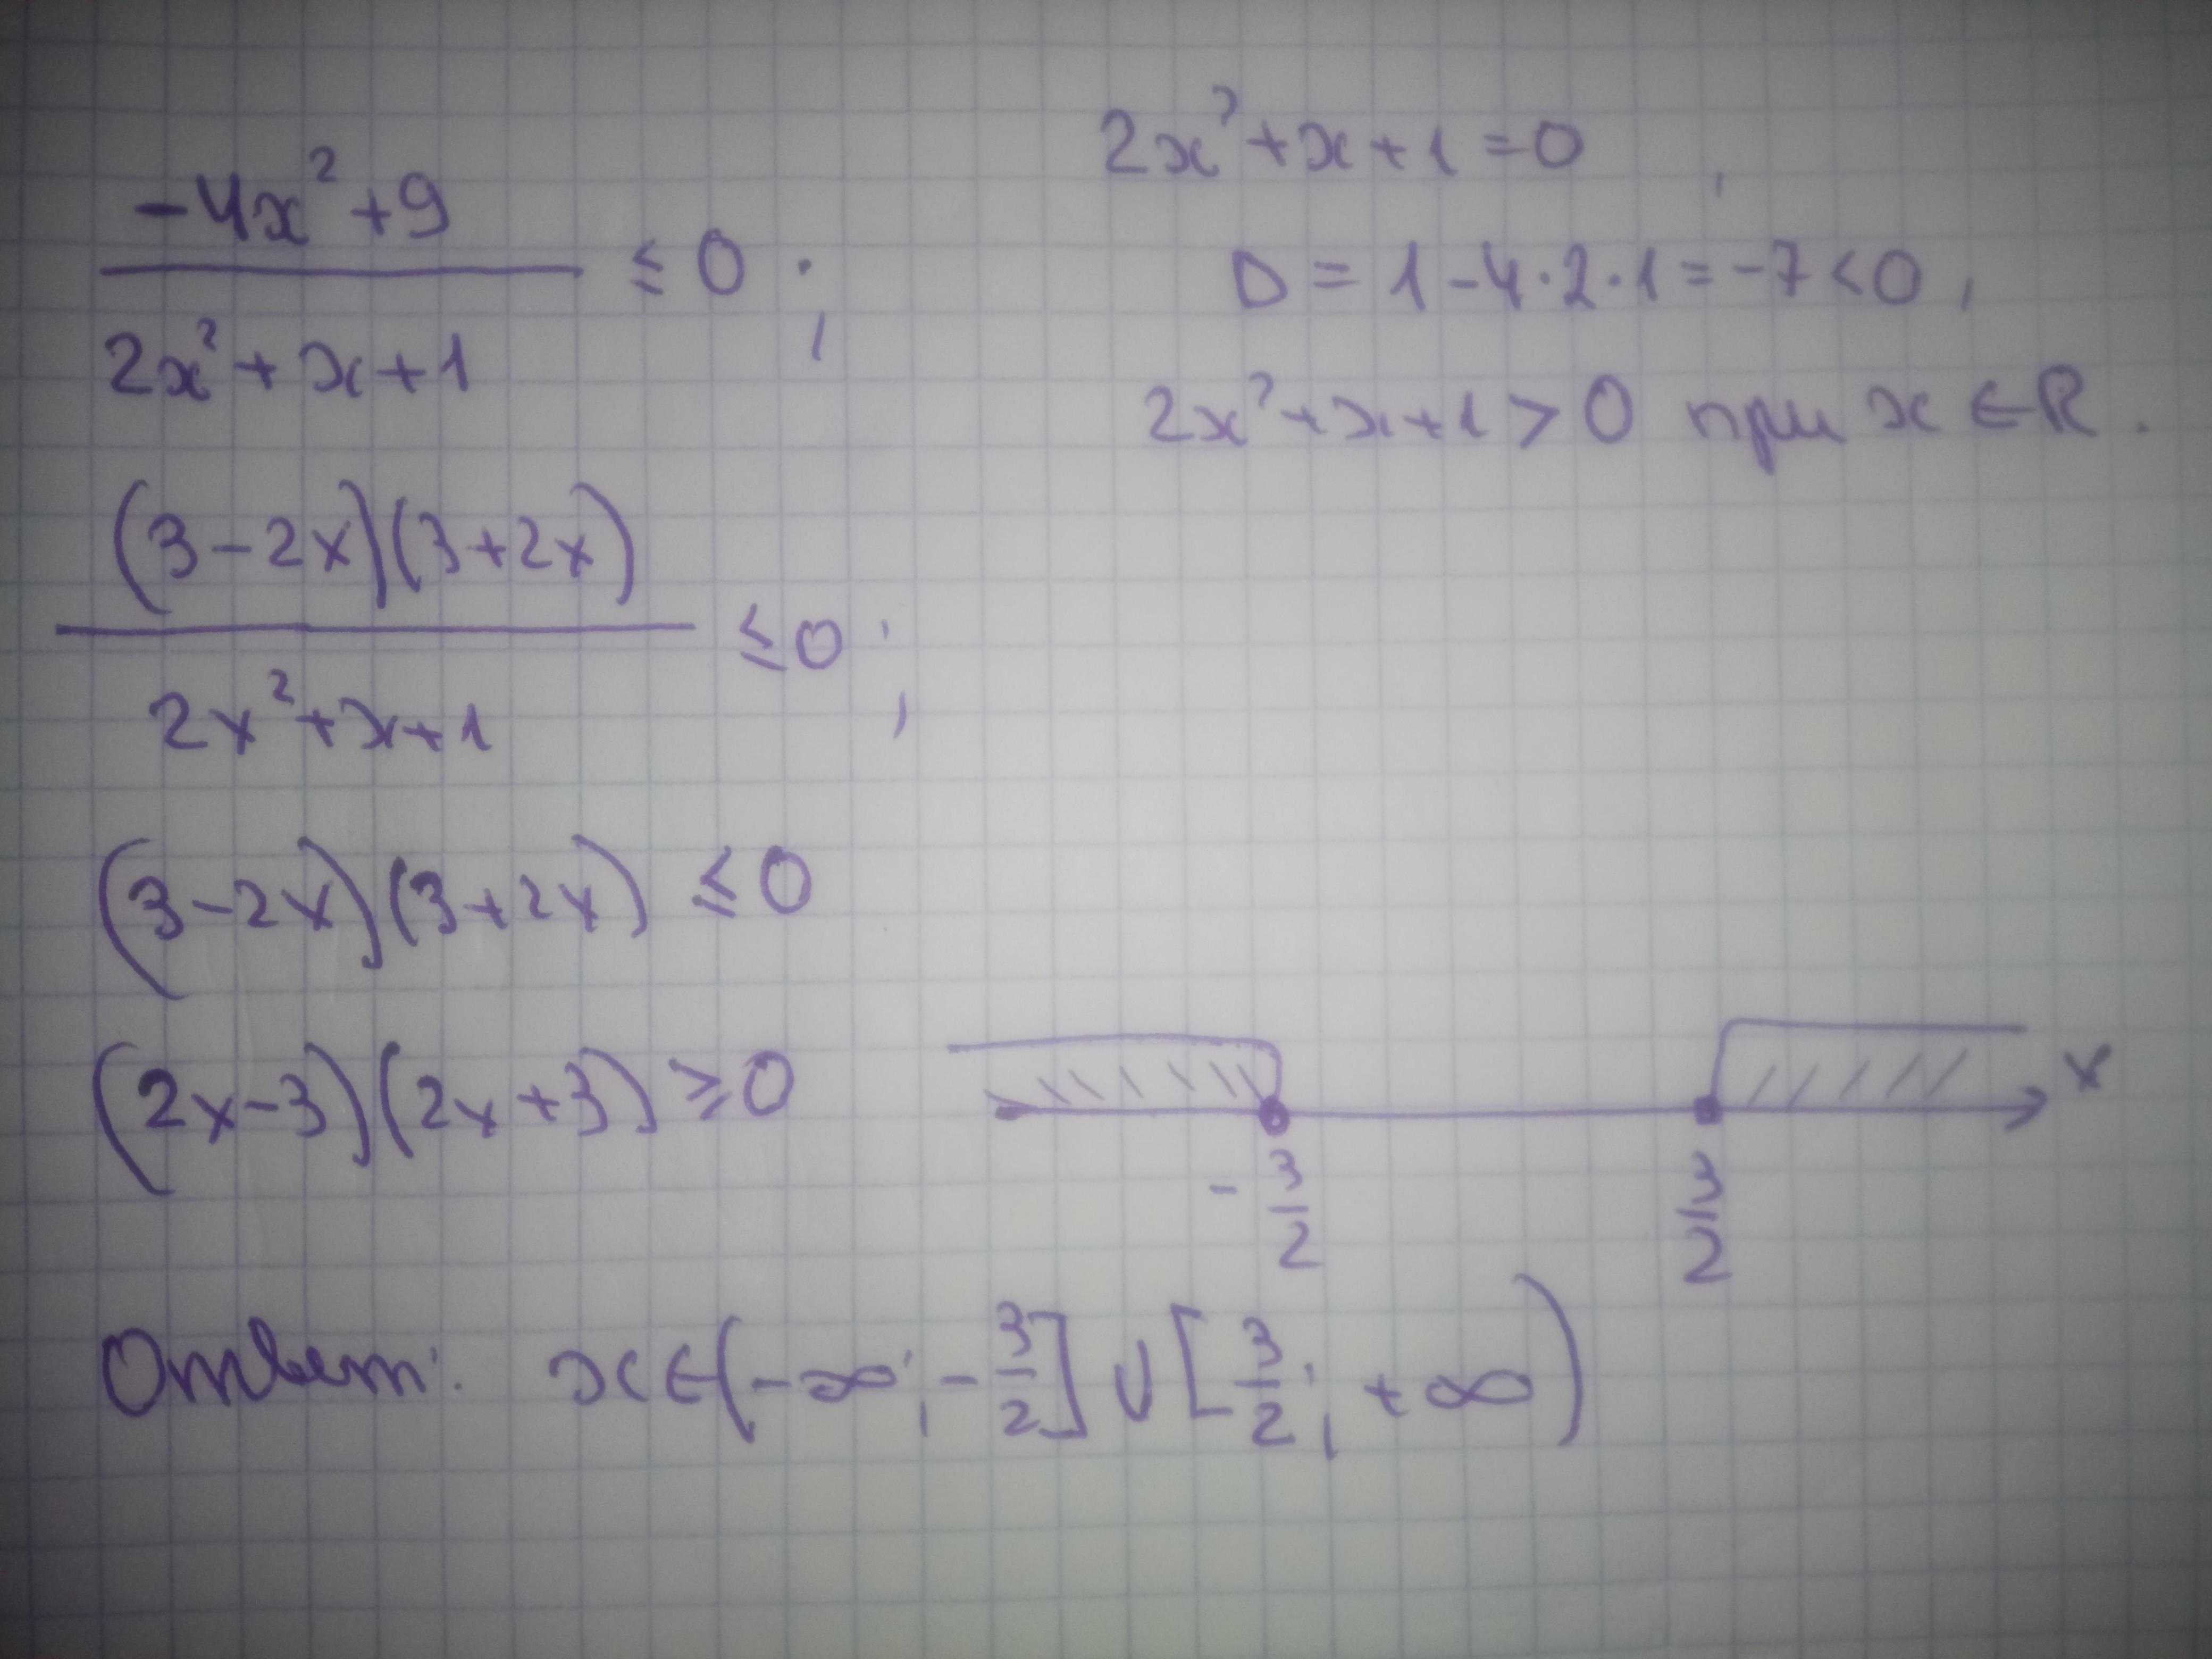 (-4x² + 9) / (2x² + x + 1) ≤ 0 ;
2x² + x + 1 = 0 ,
D = 1 - 4·2·1 = -7 < 0 ,
2x² + x + 1 > 0 при x ∈ R .
(3 - 2x)(3 + 2x) / (2x² + x + 1) ≤ 0 ;
(3 - 2x)(3 + 2x) ≤ 0
(2x - 3)(2x + 3) ≥ 0
x
- 3/2
3/2
Ответ: x ∈ (-∞; - 3/2] ∪ [3/2; +∞)